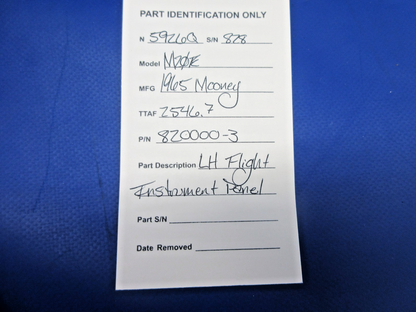 PART IDENTIFICATION ONLY
N 5926Q S/N 828
Model M20E
MFG 1965 Mooney
TTAF 2546.7
P/N 820000-3
Part Description LH Flight
Instrument Panel
Part S/N
Date Removed